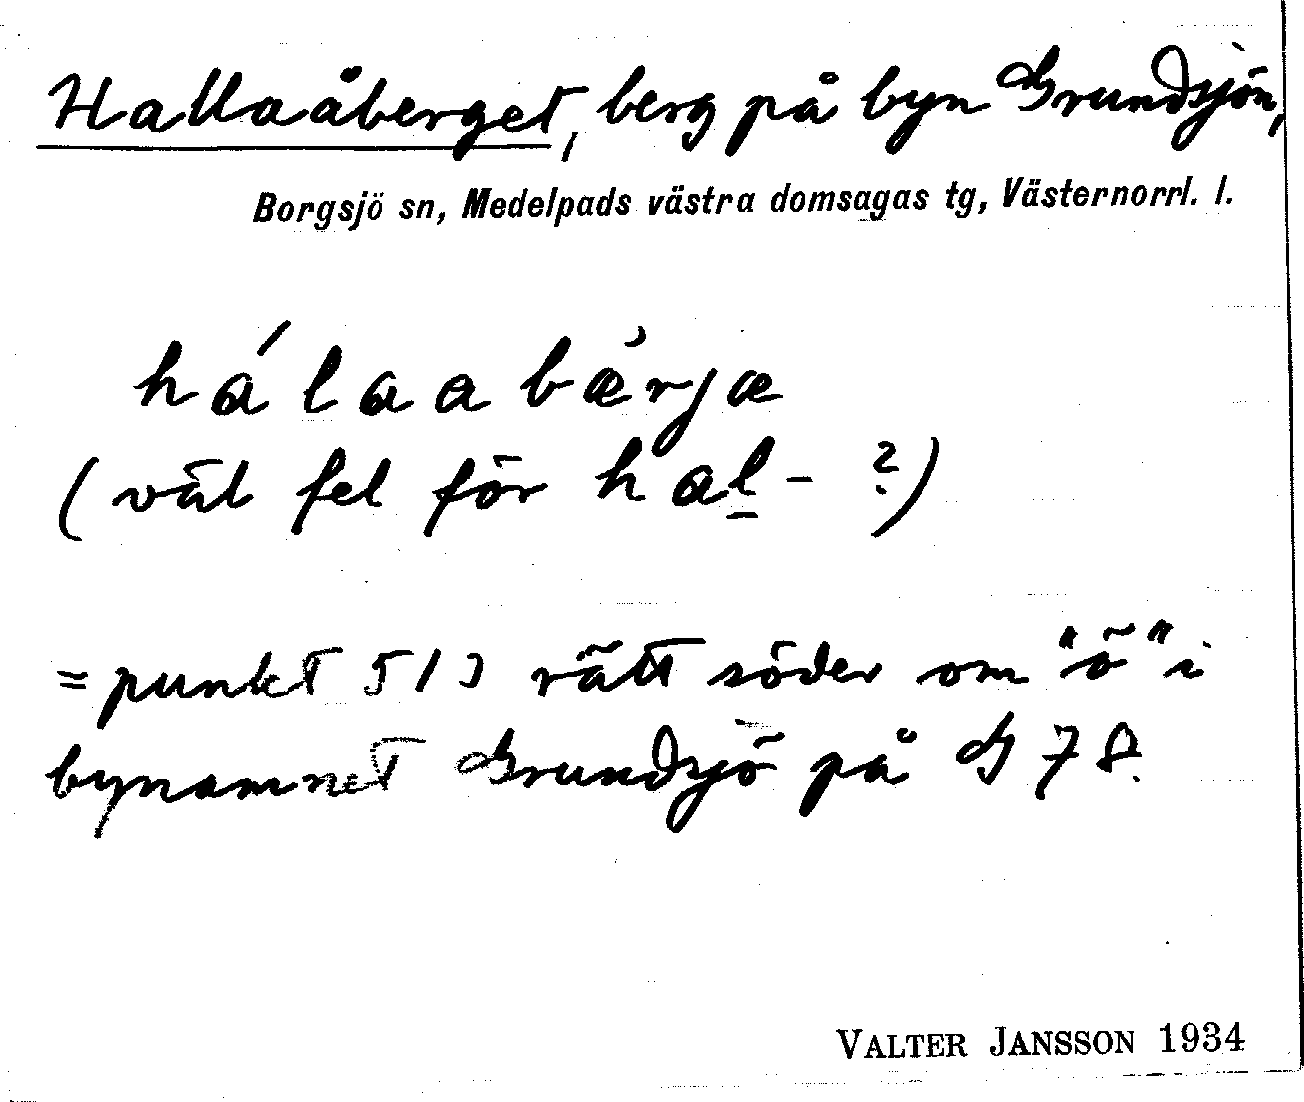 Hallaåberget, berg på byn Grundsjön,
Borgsjö sn, Medelpads västra domsagas tg, Västernorrl. l.
hálaabæ̀rjæ
(väl fel för hal̲- ?)
= punkt 513 rätt söder om "ö" i
bynamnet Grundsjö på G 78.
VALTER JANSSON 1934